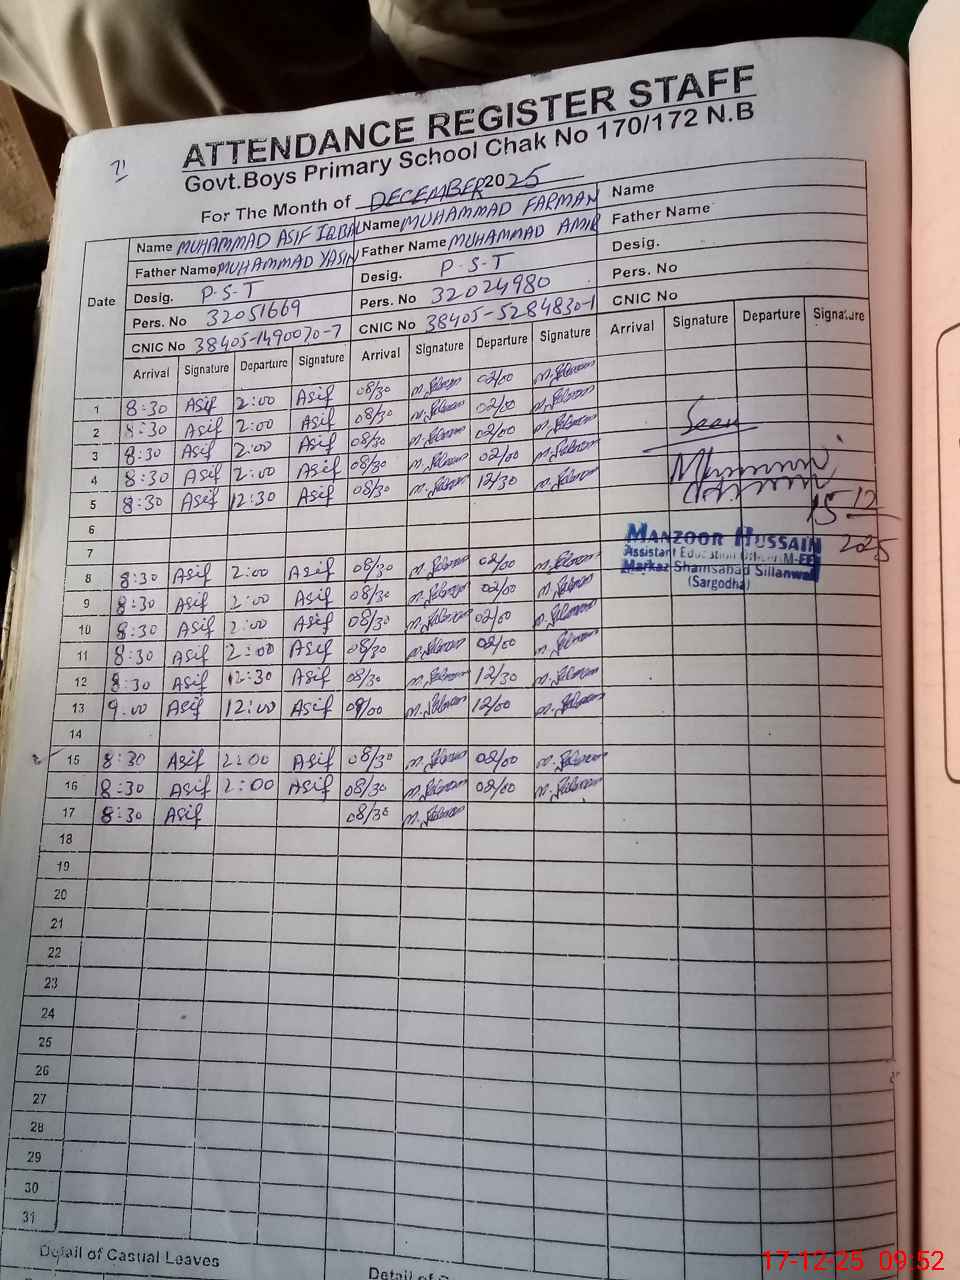 71
ATTENDANCE REGISTER STAFF
Govt.Boys Primary School Chak No 170/172 N.B
For The Month of DECEMBER 2025
Date
Name MUHAMMAD ASIF IQBAL Name MUHAMMAD FARMAN Name
Father Name MUHAMMAD YASIN Father Name MUHAMMAD AMIR Father Name
Desig. P.S.T Desig. P.S.T Desig.
Pers. No 32051669 Pers. No 32024980 Pers. No
CNIC No 38405-1490070-7 CNIC No 38405-5284830-1 CNIC No
Arrival Signature Departure Signature Arrival Signature Departure Signature Arrival Signature Departure Signature
1 8:30 Asif 2:00 Asif 08/30 02/00
2 8:30 Asif 2:00 Asif 08/30 02/00
3 8:30 Asif 2:00 Asif 08/30 02/00
4 8:30 Asif 2:00 Asif 08/30 02/00
5 8:30 Asif 12:30 Asif 08/30 12/30
15 12
2025
6
7
MANZOOR HUSSAIN
Assistant Education
Markaz Shamsabad Sillanwali
(Sargodha)
8 8:30 Asif 2:00 Asif 08/30 02/00
9 8:30 Asif 2:00 Asif 08/30 02/00
10 8:30 Asif 2:00 Asif 08/30 02/00
11 8:30 Asif 2:00 Asif 08/30 02/00
12 8:30 Asif 12:30 Asif 08/30 12/30
13 9.00 Asif 12:00 Asif 09/00 12/00
14
15 8:30 Asif 2:00 Asif 08/30 02/00
16 8:30 Asif 2:00 Asif 08/30 02/00
17 8:30 Asif 08/30
18
19
20
21
22
23
24
25
26
27
28
29
30
31
Detail of Casual Leaves Detail of
17-12-25 09:52